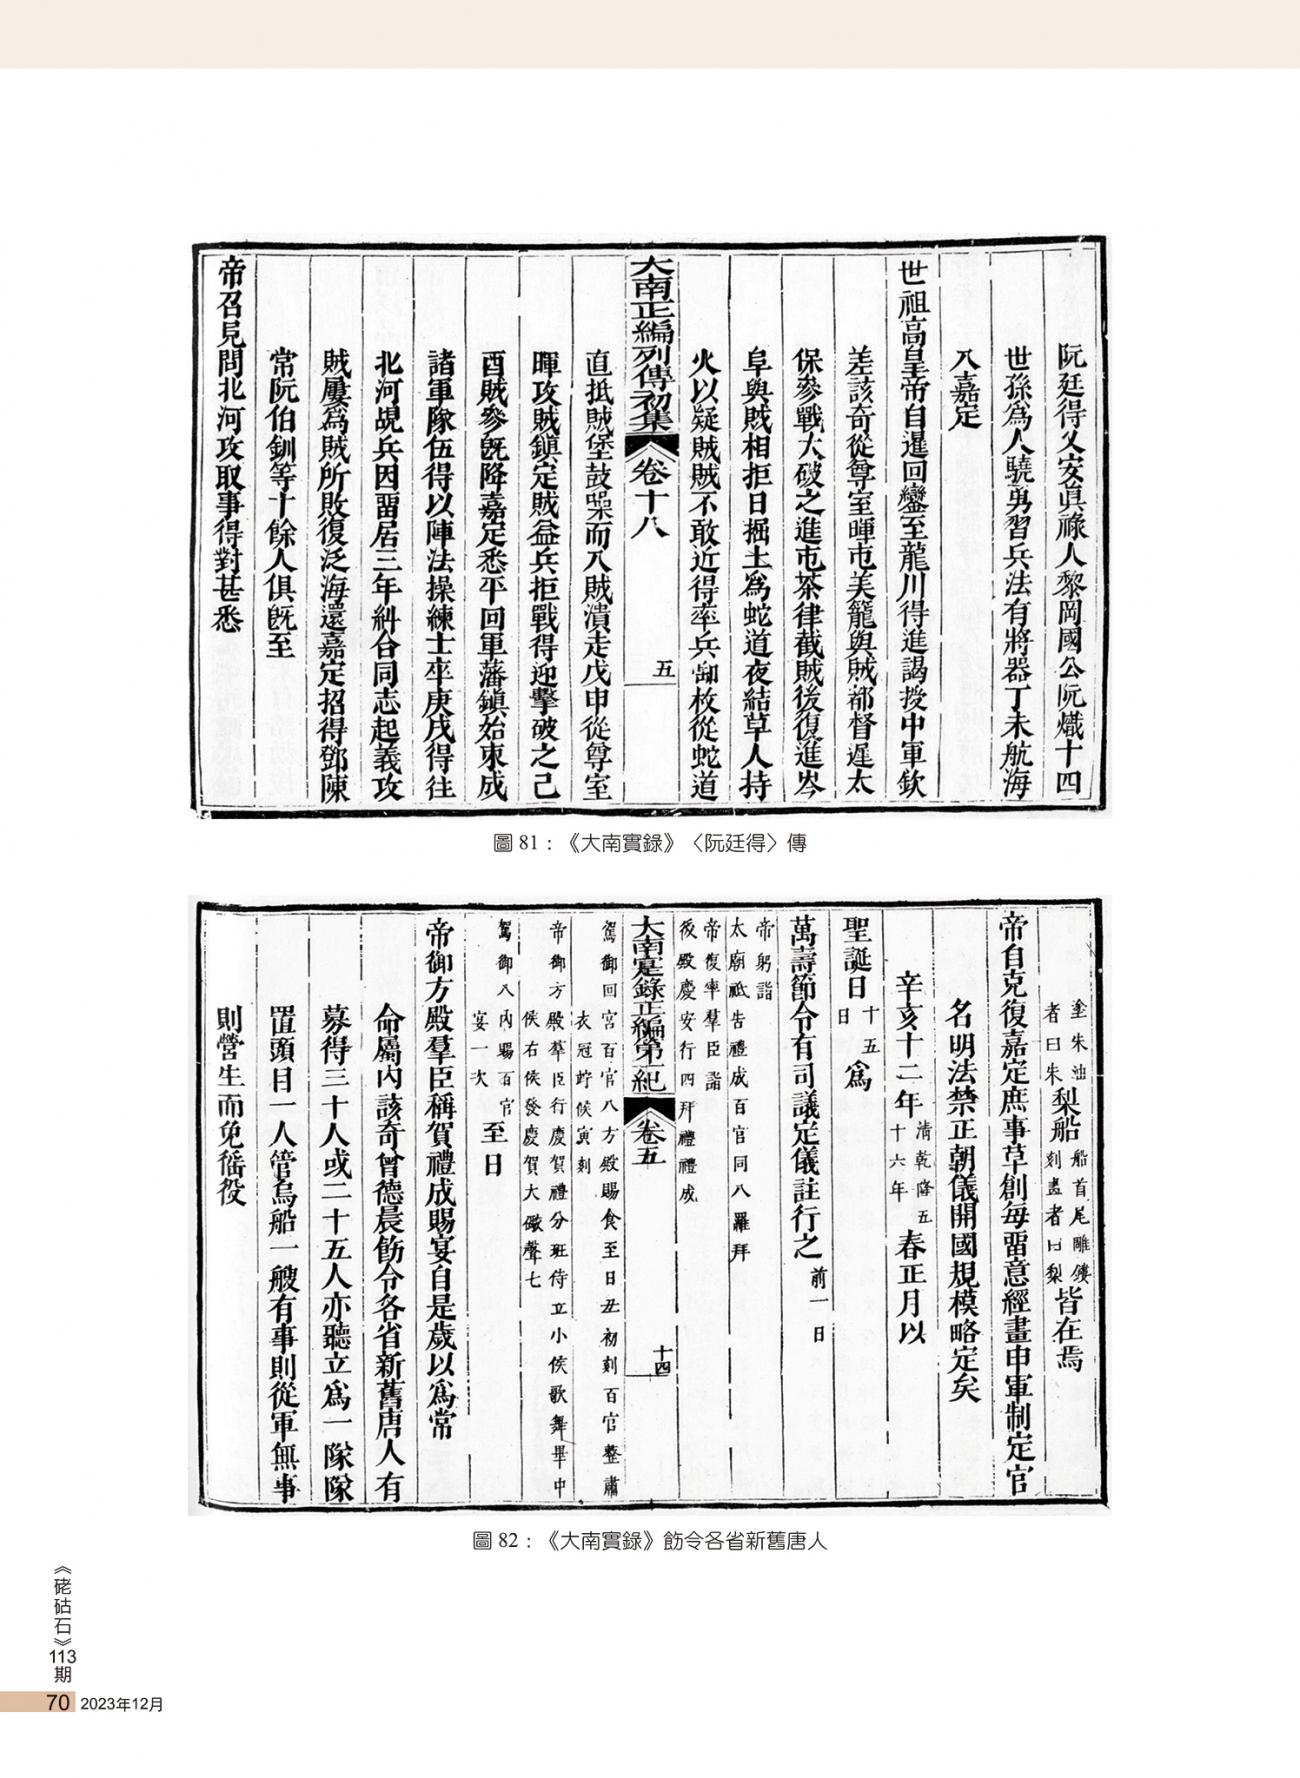 阮廷得父安眞祿人黎岡國公阮熾十四
世孫爲人驍勇習兵法有將器丁未航海
入嘉定
世祖高皇帝自暹回鑾至龍川得進謁授中軍欽
差該奇從尊室暉屯美籠與賊都督遲太
保參戰大破之進屯茶律截賊後復進岑
阜與賊相拒日掘土爲蛇道夜結草人持
火以疑賊賊不敢近得率兵啣枚從蛇道
大南正編列傳初集 卷十八 五
直抵賊堡鼓噪而入賊潰走戊申從尊室
暉攻賊鎭定賊益兵拒戰得迎擊破之己
酉賊參旣降嘉定悉平回軍藩鎭始柬成
諸軍隊伍得以陣法操練士卒庚戌得往
北河覘兵因畱居三年糾合同志起義攻
賊屢爲賊所敗復泛海還嘉定招得鄧陳
常阮伯釧等十餘人俱旣至
帝召見問北河攻取事得對甚悉
圖 81：《大南實錄》〈阮廷得〉傳
塗朱油者曰朱梨船船首尾雕鏤刻畫者曰梨皆在焉
帝自克復嘉定庶事草創每畱意經畫申軍制定官
名明法禁正朝儀開國規模略定矣
辛亥十二年清乾隆五十六年春正月以
聖誕日十五日爲
萬壽節令有司議定儀註行之前一日
帝躬詣
太廟祗告禮成百官同八羅拜
帝復率羣臣詣
後殿慶安行四拜禮禮成
大南寔錄正編第一紀 卷五 十四
駕御回宮百官八方殿賜食至日丑初刻百官整肅
衣冠竚候寅刻
帝御方殿羣臣行慶賀禮分班侍立小侯歌舞畢中
侯右侯發慶賀大礮聲七
駕御入內賜百官
宴一次至日
帝御方殿羣臣稱賀禮成賜宴自是歲以爲常
命屬內該奇曾德晨飭令各省新舊唐人有
募得三十人或二十五人亦聽立爲一隊隊
置頭目一人管烏船一艘有事則從軍無事
則營生而免徭役
圖 82：《大南實錄》飭令各省新舊唐人
《硓𥑮石》113期
70 2023年12月